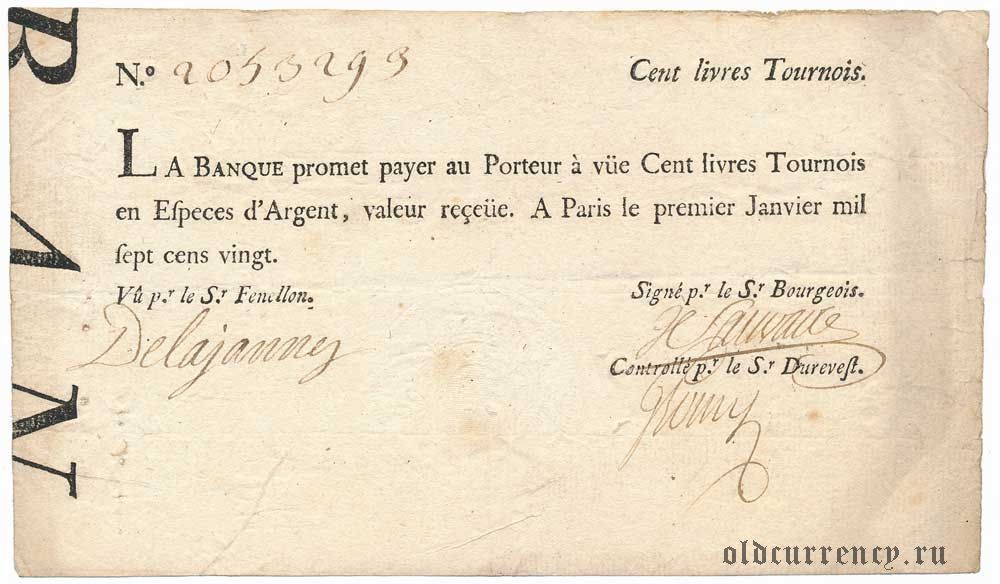 BAN
N.o 2053293 Cent livres Tournois.
LA BANQUE promet payer au Porteur à vüe Cent livres Tournois
en Eſpeces d'Argent, valeur reçeüe. A Paris le premier Janvier mil
ſept cens vingt.
Vû p.r le S.r Fenellon. Signé p.r le S.r Bourgeois.
Delajanney
Controllé p.r le S.r Dureveſt.
oldcurrency.ru